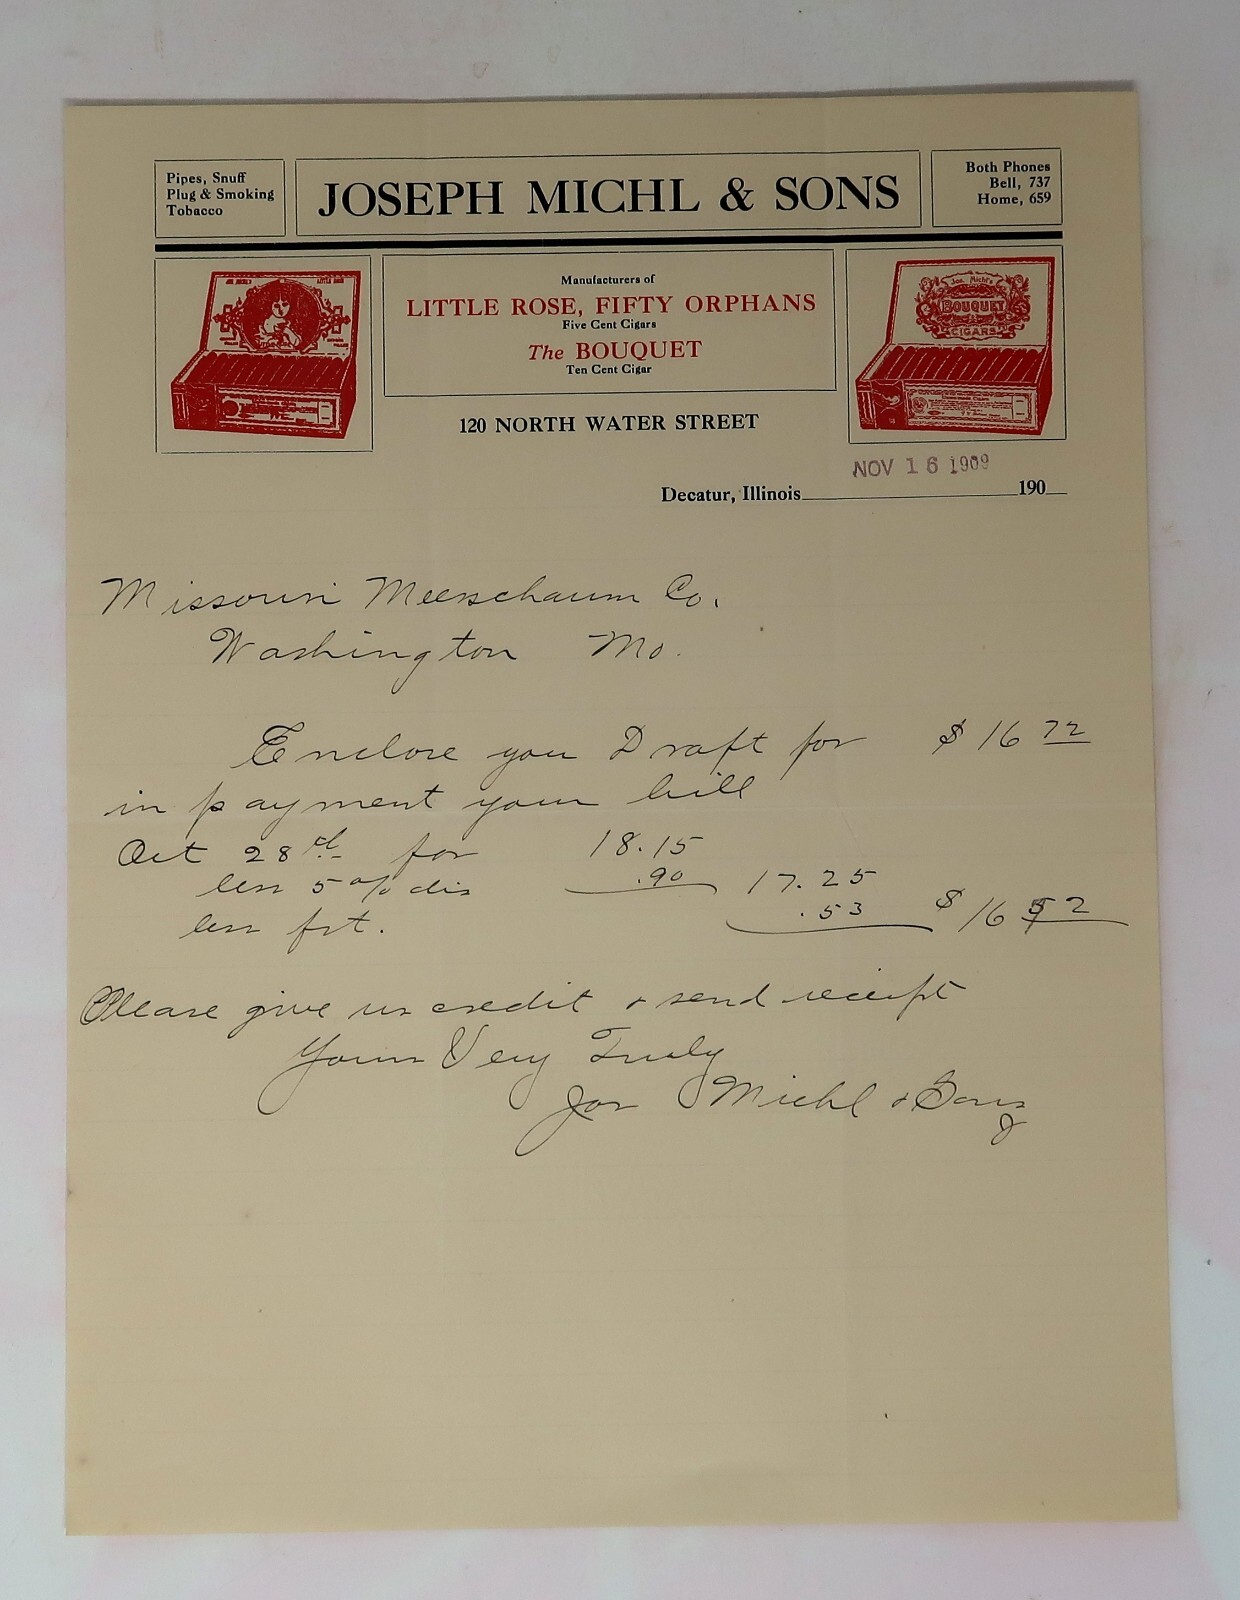 Pipes, Snuff
Plug & Smoking
Tobacco
JOSEPH MICHL & SONS
Both Phones
Bell, 737
Home, 659
JOE MICHL'S LITTLE ROSE
Manufacturers of
LITTLE ROSE, FIFTY ORPHANS
Five Cent Cigars
The BOUQUET
Ten Cent Cigar
Jos. Michl's
BOUQUET
CIGARS
120 NORTH WATER STREET
NOV 16 1909
Decatur, Illinois 190
Missouri Meerschaum Co.
Washington Mo.
Enclose you Draft for $ 16 72
in payment your bill
Oct 28th for 18.15
less 5% dis .90 17.25
less frt. .53 $ 16 72
Please give us credit & send receipt
Yours Very Truly
Jos Michl & Sons